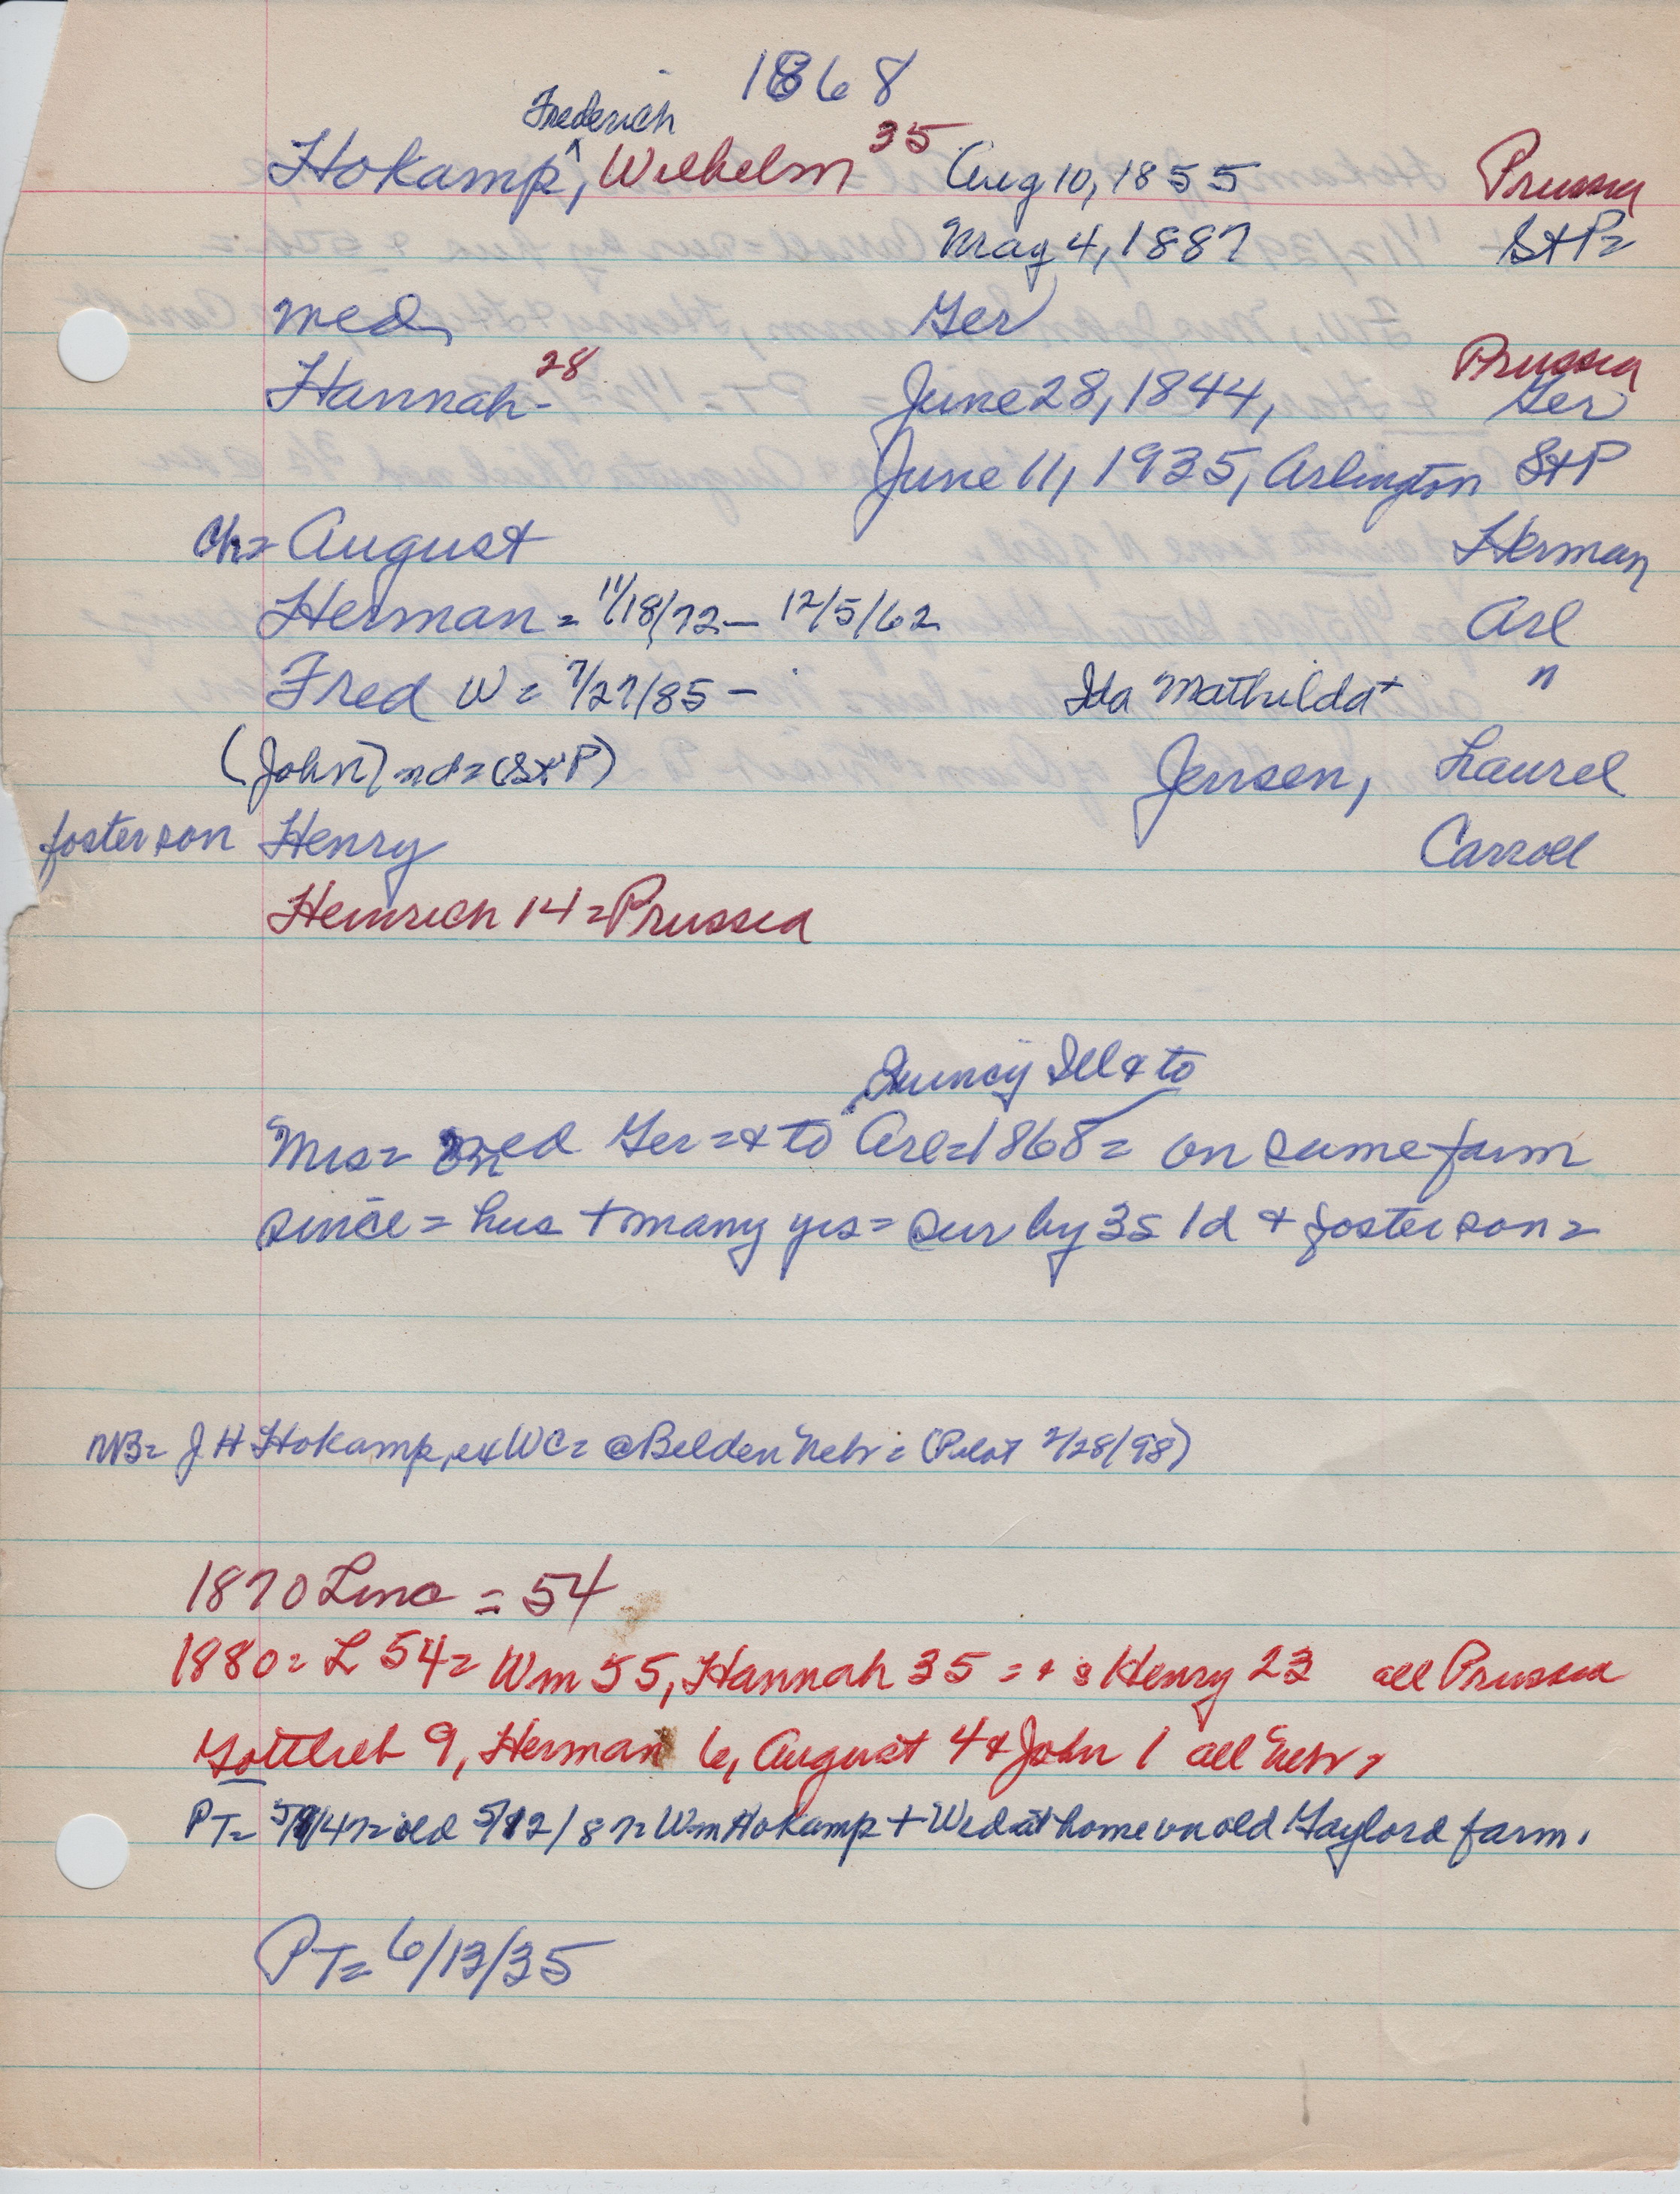 1868
Frederich
Hokamp, ^ Wilhelm 35 Aug 10, 1855 Prussia
May 4, 1887 St P=
med, Ger Prussia
Hannah- 28 June 28, 1844, Ger
June 11, 1935, Arlington St P
Ch= August Herman
Herman = 11/18/72 — 12/5/62 Arl
Fred W = 7/27/85 — Ida Mathilda + "
(John) nd = (St P) Jensen, Laurel
foster son Henry Carroll
Heinrich 14 = Prussia
Quincy Ill & to
Mrs = med Ger = & to Arl = 1868 = on same farm
since = hus + many yrs = sur by 3s 1d & foster son =
NB = J H Hokamp, ex WC = @ Belden Nebr = (Pilot 2/28/98)
1870 Linc = 54
1880 = L 54 = Wm 55, Hannah 35 = + s Henry 23 all Prussia
Gottlieb 9, Herman 6, August 4 & John 1 all Nebr =
PT = 47 = old 5/12/87 = Wm Hokamp + Wed at home on old Gaylord farm.
PT = 6/13/35